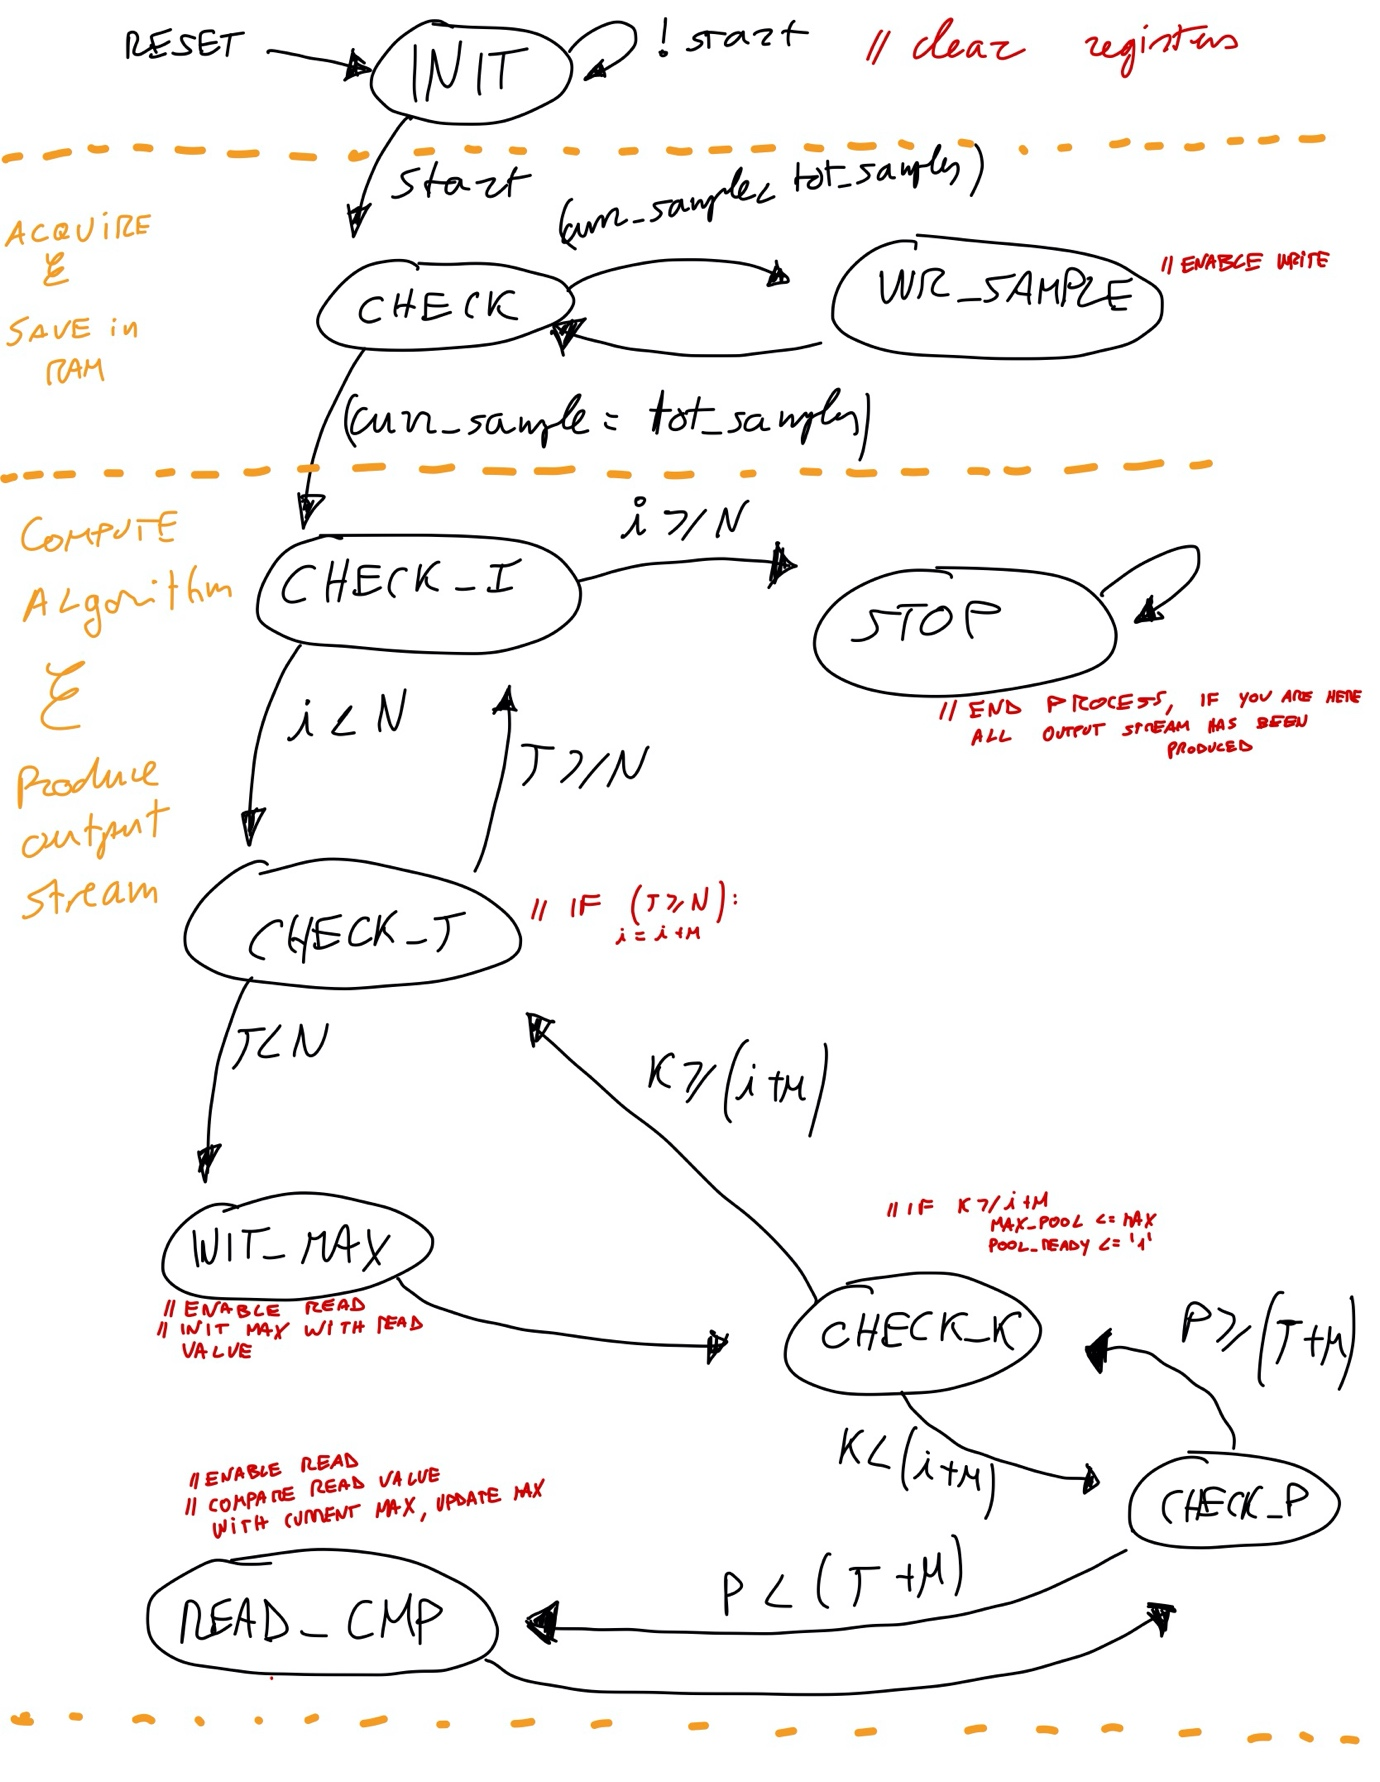 RESET
INIT
! start
// clear registers
start
(curr_sample < tot_samples)
ACQUIRE
&
SAVE in
RAM
CHECK
WR_SAMPLE
// ENABLE WRITE
(curr_sample = tot_samples)
COMPUTE
ALgorithm
&
Produce
output
stream
CHECK_I
i ≥ N
STOP
// END PROCESS, IF YOU ARE HERE
ALL OUTPUT STREAM HAS BEEN
PRODUCED
i < N
T ≥ N
CHECK_T
// IF (T ≥ N):
i = i+M
T < N
K ≥ (i+M)
INIT_MAX
// ENABLE READ
// INIT MAX WITH READ
VALUE
// IF K ≥ i+M
MAX_POOL <= MAX
POOL_READY <= '1'
CHECK_K
P ≥ (T+M)
K < (i+M)
CHECK_P
// ENABLE READ
// COMPARE READ VALUE
WITH CURRENT MAX, UPDATE MAX
P < (T+M)
READ_CMP